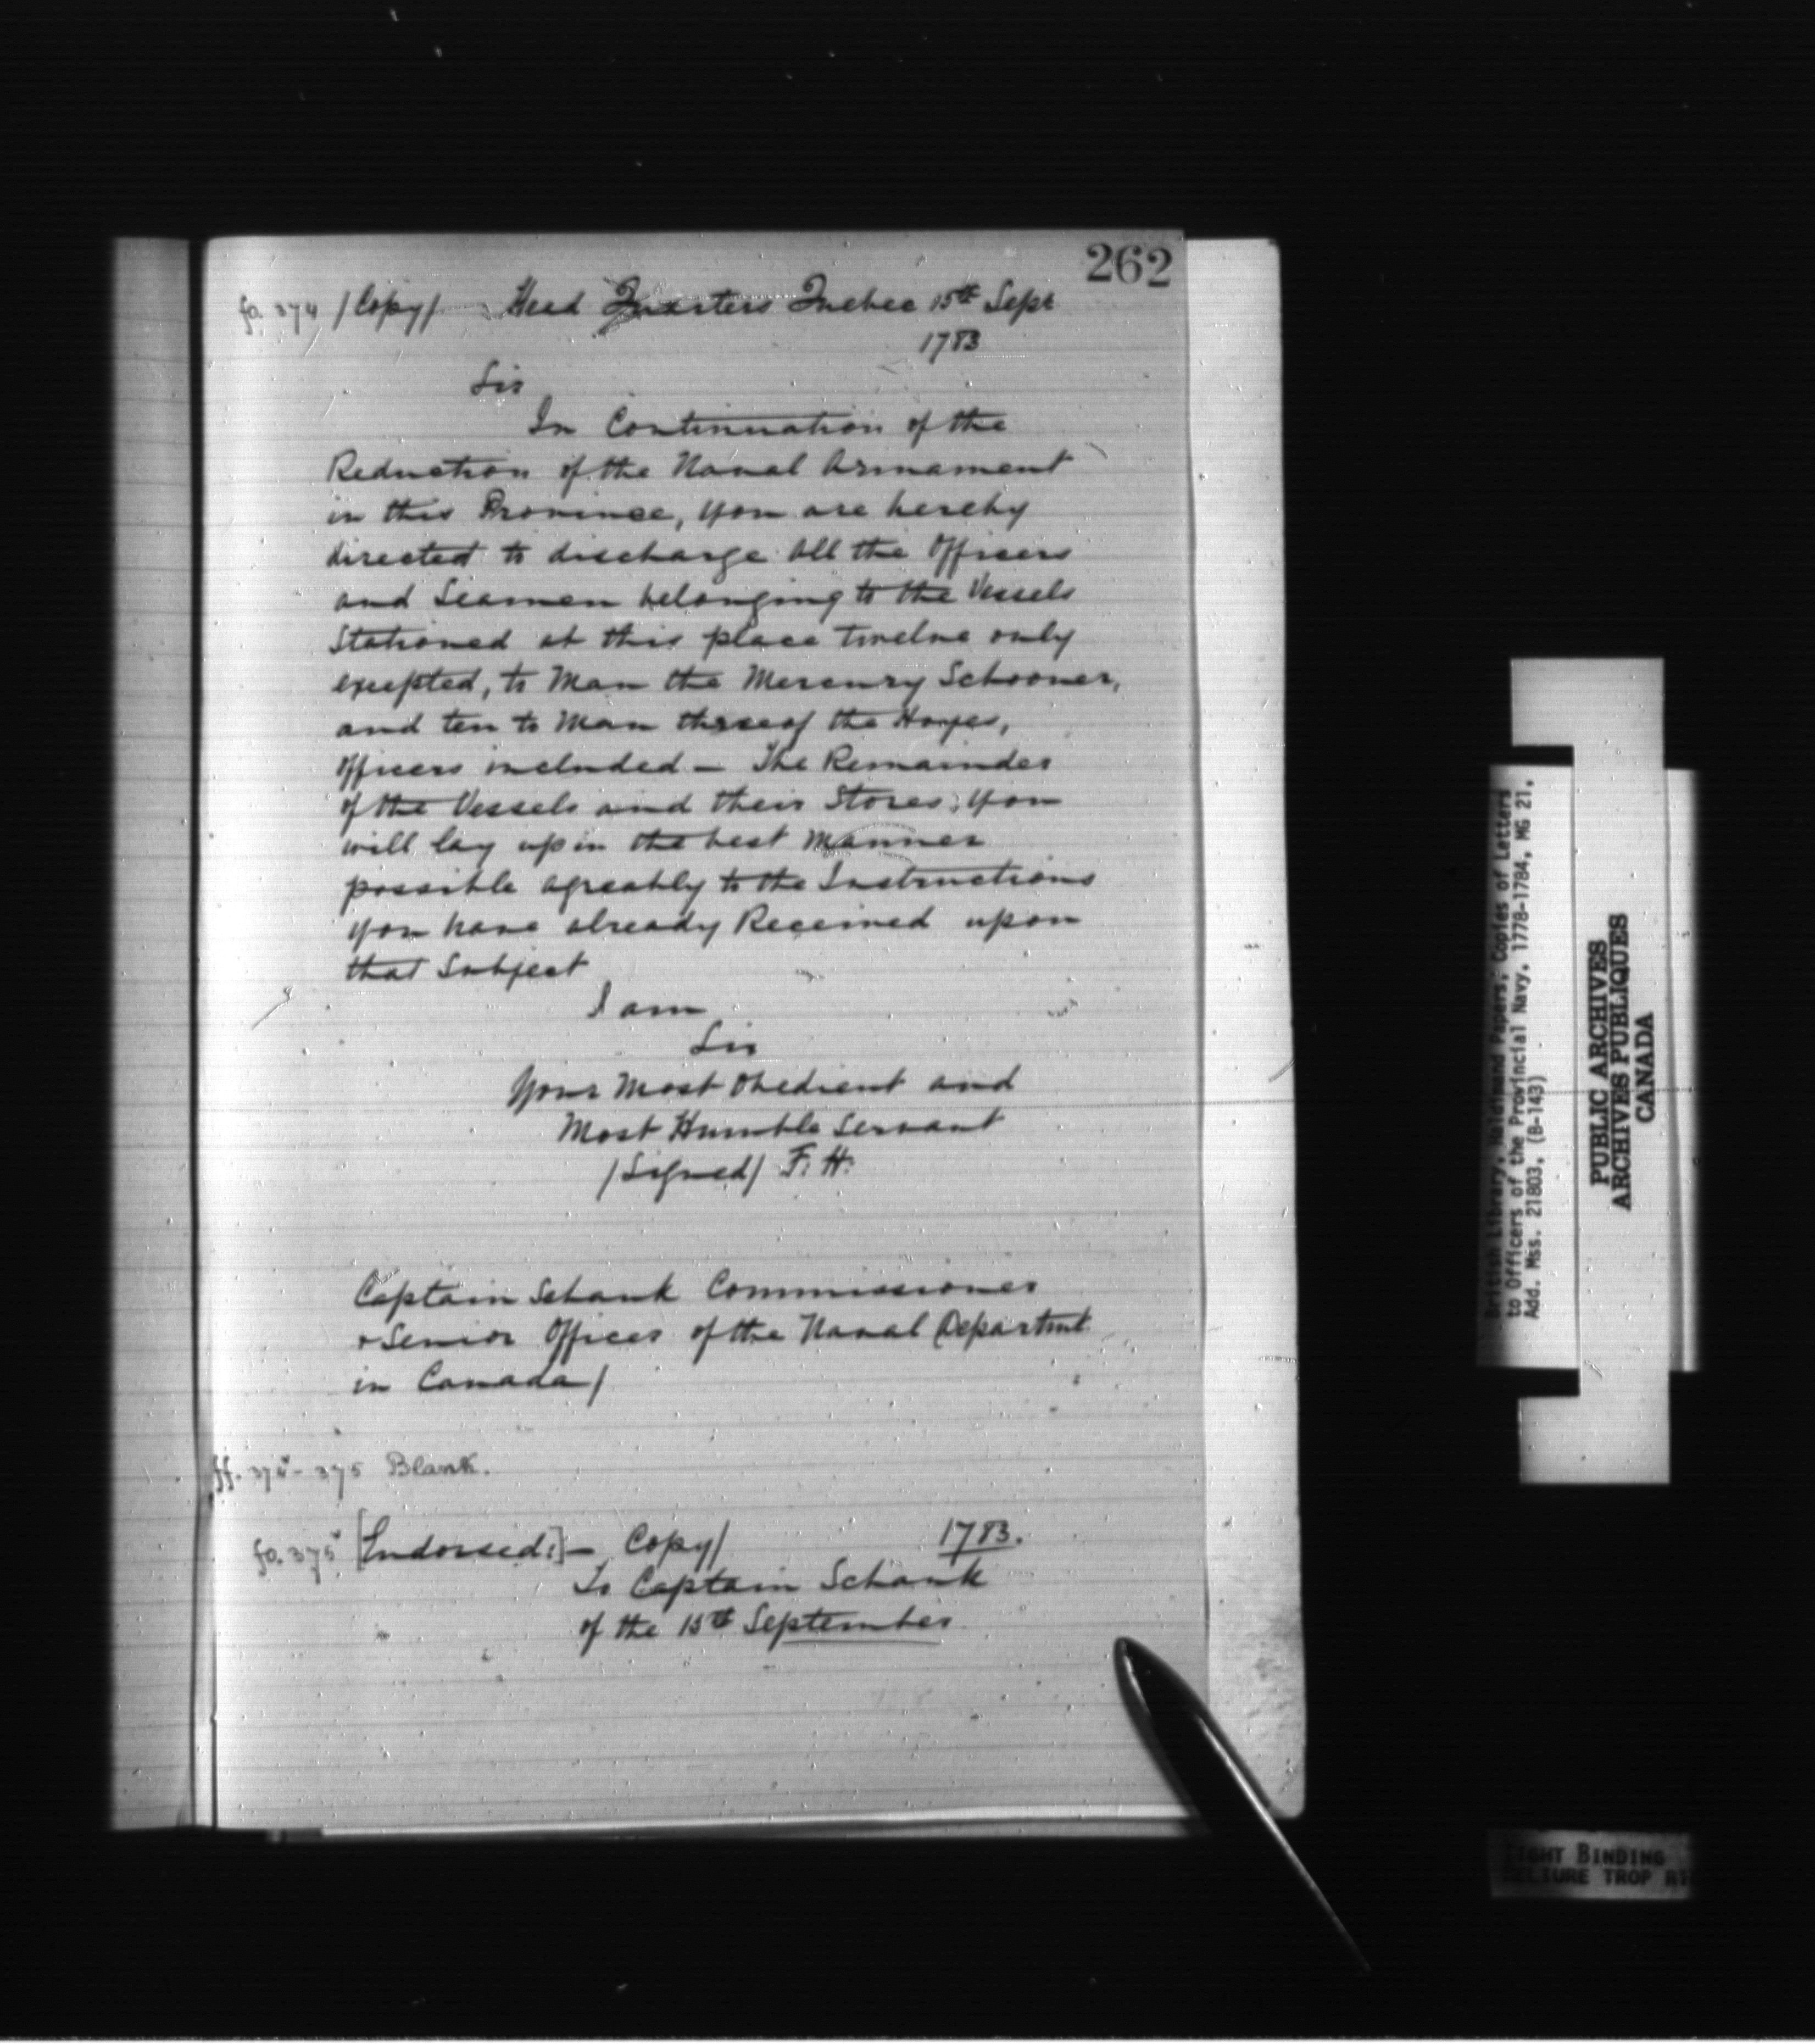 262
fo. 374 /Copy/ Head Quarters Quebec 15th Sept
1783
Sir
In Continuation of the
Reduction of the Naval Armament
in this Province, you are hereby
directed to discharge all the Officers
and Seamen belonging to the Vessels
Stationed at this place twelve only
excepted, to Man the Mercury Schooner,
and ten to Man three of the Hoyes,
Officers included — The Remainder
of the Vessels and their Stores, you
will lay up in the best Manner
possible agreably to the Instructions
you have already Received upon
that Subject
I am
Sir
Your Most Obedient and
Most Humble Servant
/Signed/ F. H.
Captain Schank Commissioner
& Senior Officer of the Naval Departmt
in Canada/
ff. 374v- 375 Blank.
fo. 375v [Endorsed:]— Copy/ 1783.
To Captain Schank
of the 15th September
British Library, Haldimand Papers; Copies of Letters
to Officers of the Provincial Navy, 1778-1784, MG 21,
Add. Mss. 21803, (B-143)
PUBLIC ARCHIVES
ARCHIVES PUBLIQUES
CANADA
TIGHT BINDING
RELIURE TROP